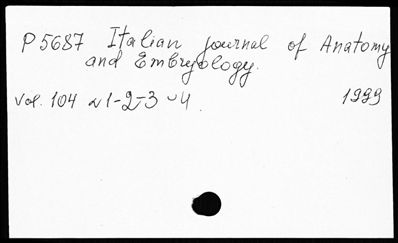 P5687 Italian journal of Anatomy
and Embryology.
Vol. 104 n 1-2-3-4 1999